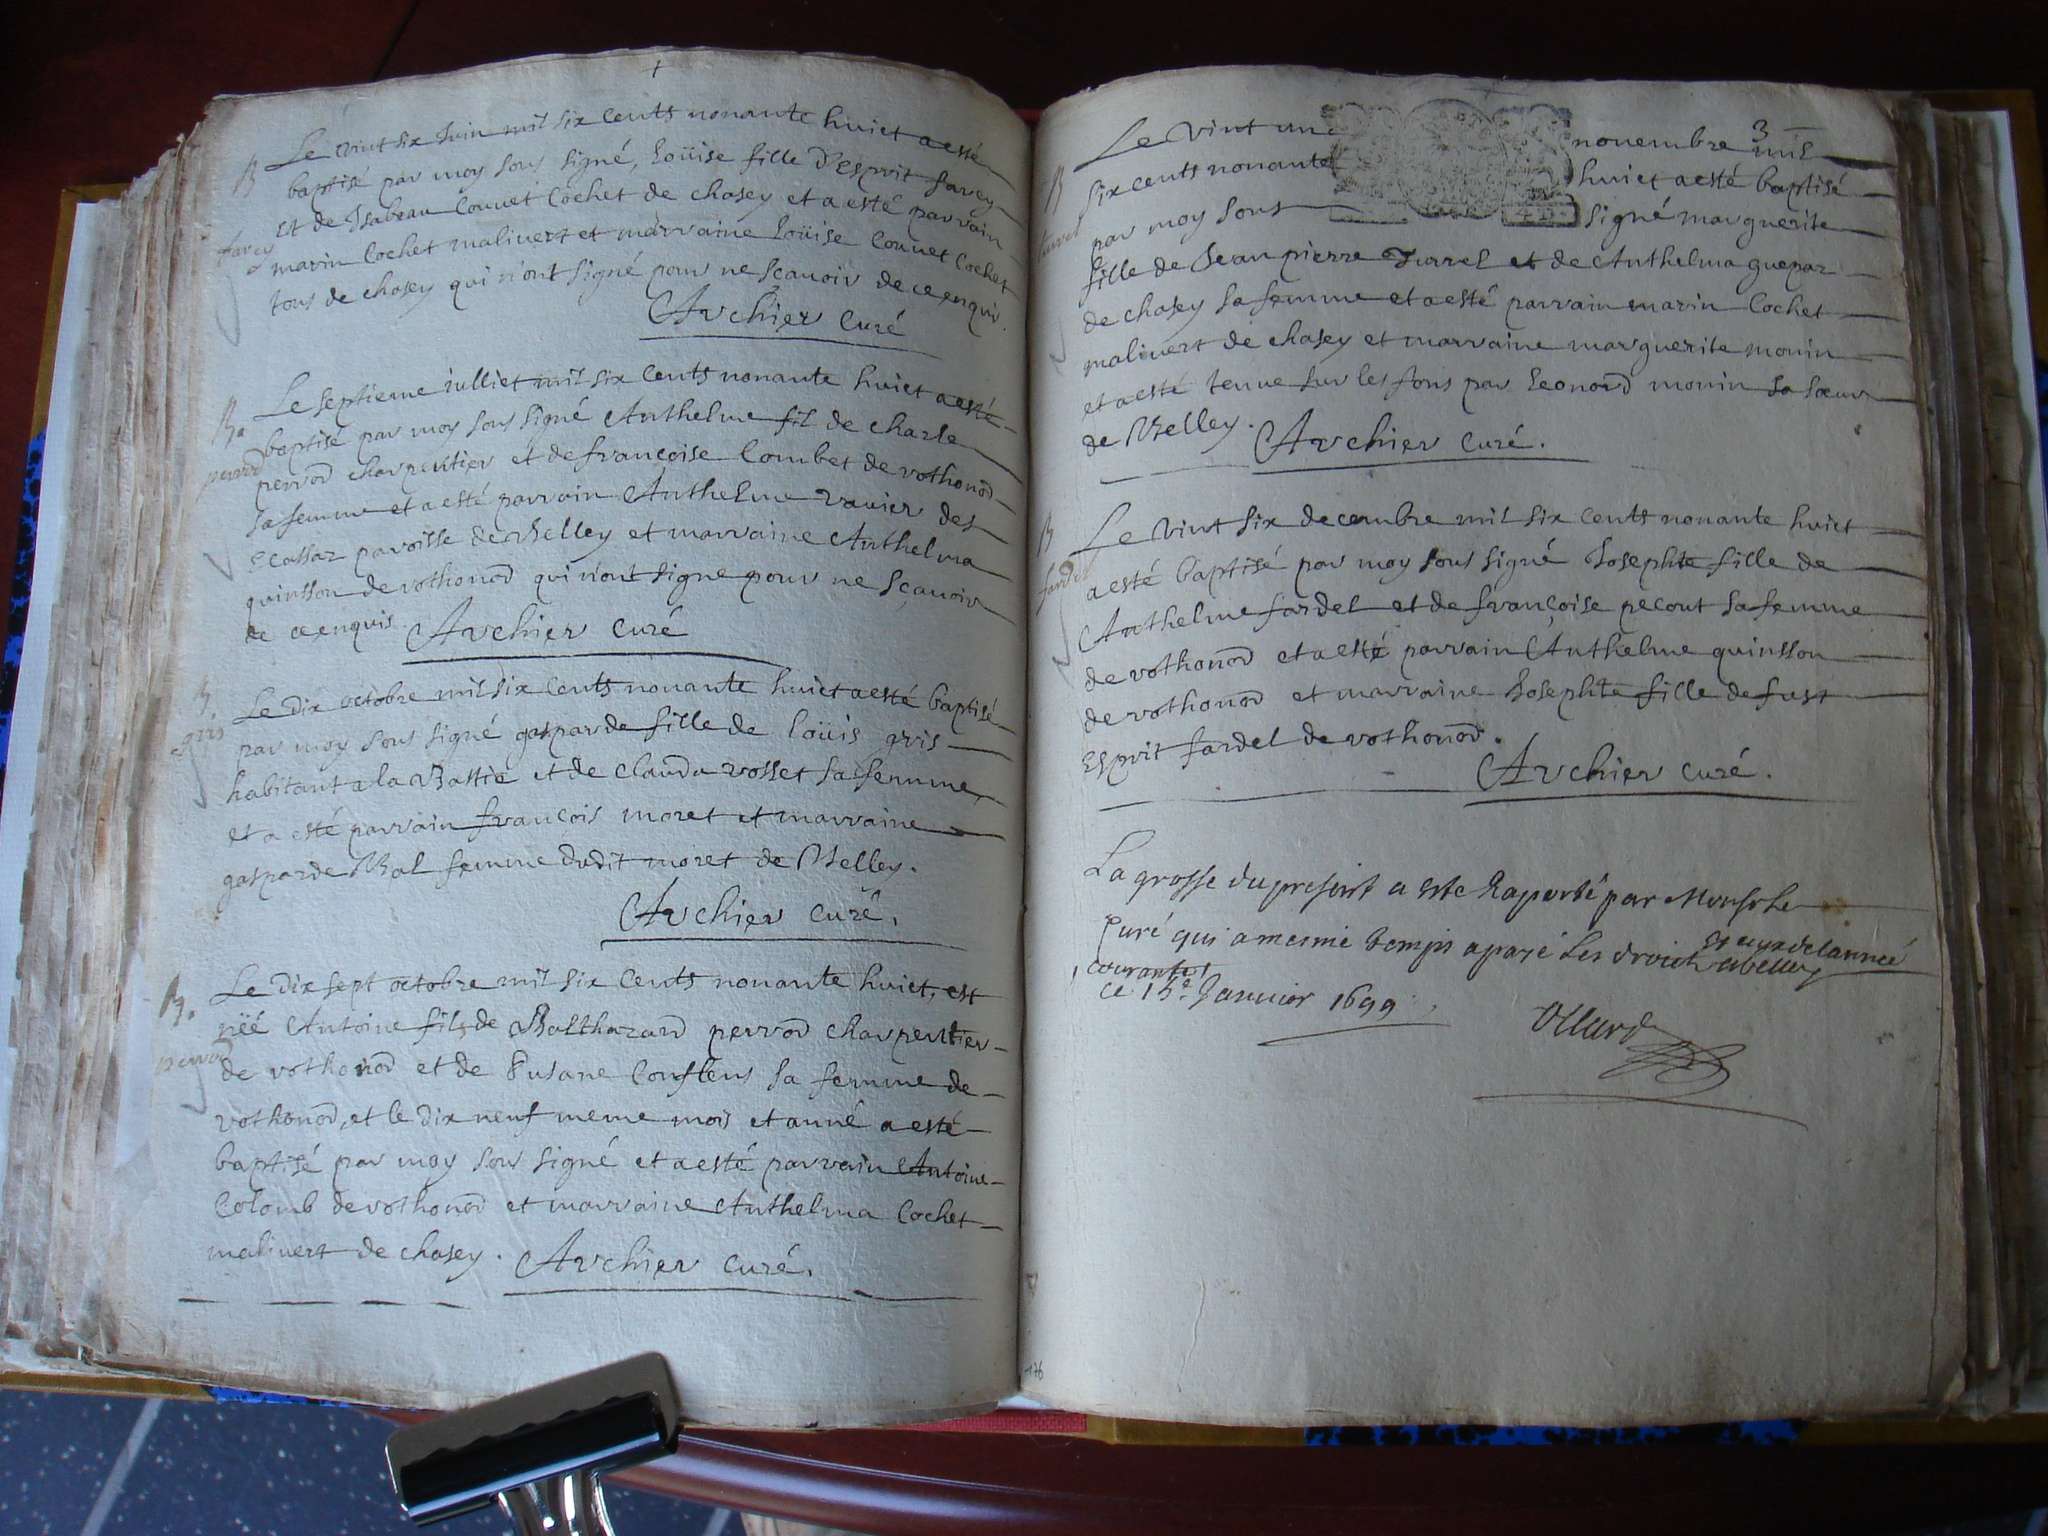 B
Le vint six Juin mil six cents nonante huict a esté
baptisé par moy sous signé, Loüise fille d'Esprit farcy
et de Isabeau Couuet Cochet de chasey et a esté parrain
farcy
marin Cochet maliuert et marraine Loüise Couuet Cochet
tous de chasey qui n'ont signé pour ne scauoir de ce enquis.
Archier Curé
Le septieme iulliet mil six cents nonante huict a esté
Ba
baptisé par moy sous signé Anthelme fil de Charle
perrod
perrod charpentier et de françoise Combet de vothonod
sa femme et a esté parrain Anthelme vauier des
ecassaz paroisse de Belley et marraine Anthelma
quinsson de vothonod qui n'ont signe pour ne scauoir
de ce enquis. Archier curé
B.
Le dix octobre mil six cents nonante huict a esté baptisé
gris
par moy sous signé gasparde fille de loüis gris
habitant a la Bastie et de clauda rosset sa femme,
et a esté parrain françois moret et marraine
gasparde Bal femme dudit moret de Belley.
Archier curé.
B.
Le dix sept octobre mil six cents nonante huict, est
néé Antoine fils de Balthazard perrod charpentier
perrod
de vothonod et de Susane Constens sa femme de
vothonod, et le dix neuf meme mois et anné a esté
baptisé par moy sous signé et a esté parrain Antoine
Colomb de vothonod et marraine Anthelma Cochet
maliuert de chasey. Archier curé.
3
B
Le vint un nouembre mil
six cents nonante huict a esté baptisé
par moy sous signé marguerite
turrel
fille de Jean pierre Turrel et de Anthelma guepar
de chasey sa femme et a esté parrain marin Cochet
maliuert de chasey et marraine marguerite monin
et a esté tenue sur les fons par Leonord monin sa sœur
de Belley. Archier Curé.
B
Le vint six decembre mil six cents nonante huict
fardel
a esté baptisé par moy sous signé Josephte fille de
Anthelme fardel et de françoise pecout sa femme
de vothonod et a esté parrain Anthelme quinsson
de vothonod et marraine Josephte fille de fust
Esprit fardel de vothonod.
Archier curé.
La grosse du present a esté Raporté par Monsr le
Curé qui a mesme temps a payé les droict et ceux de lannée
courante a belley
ce 15e Januier 1699
176